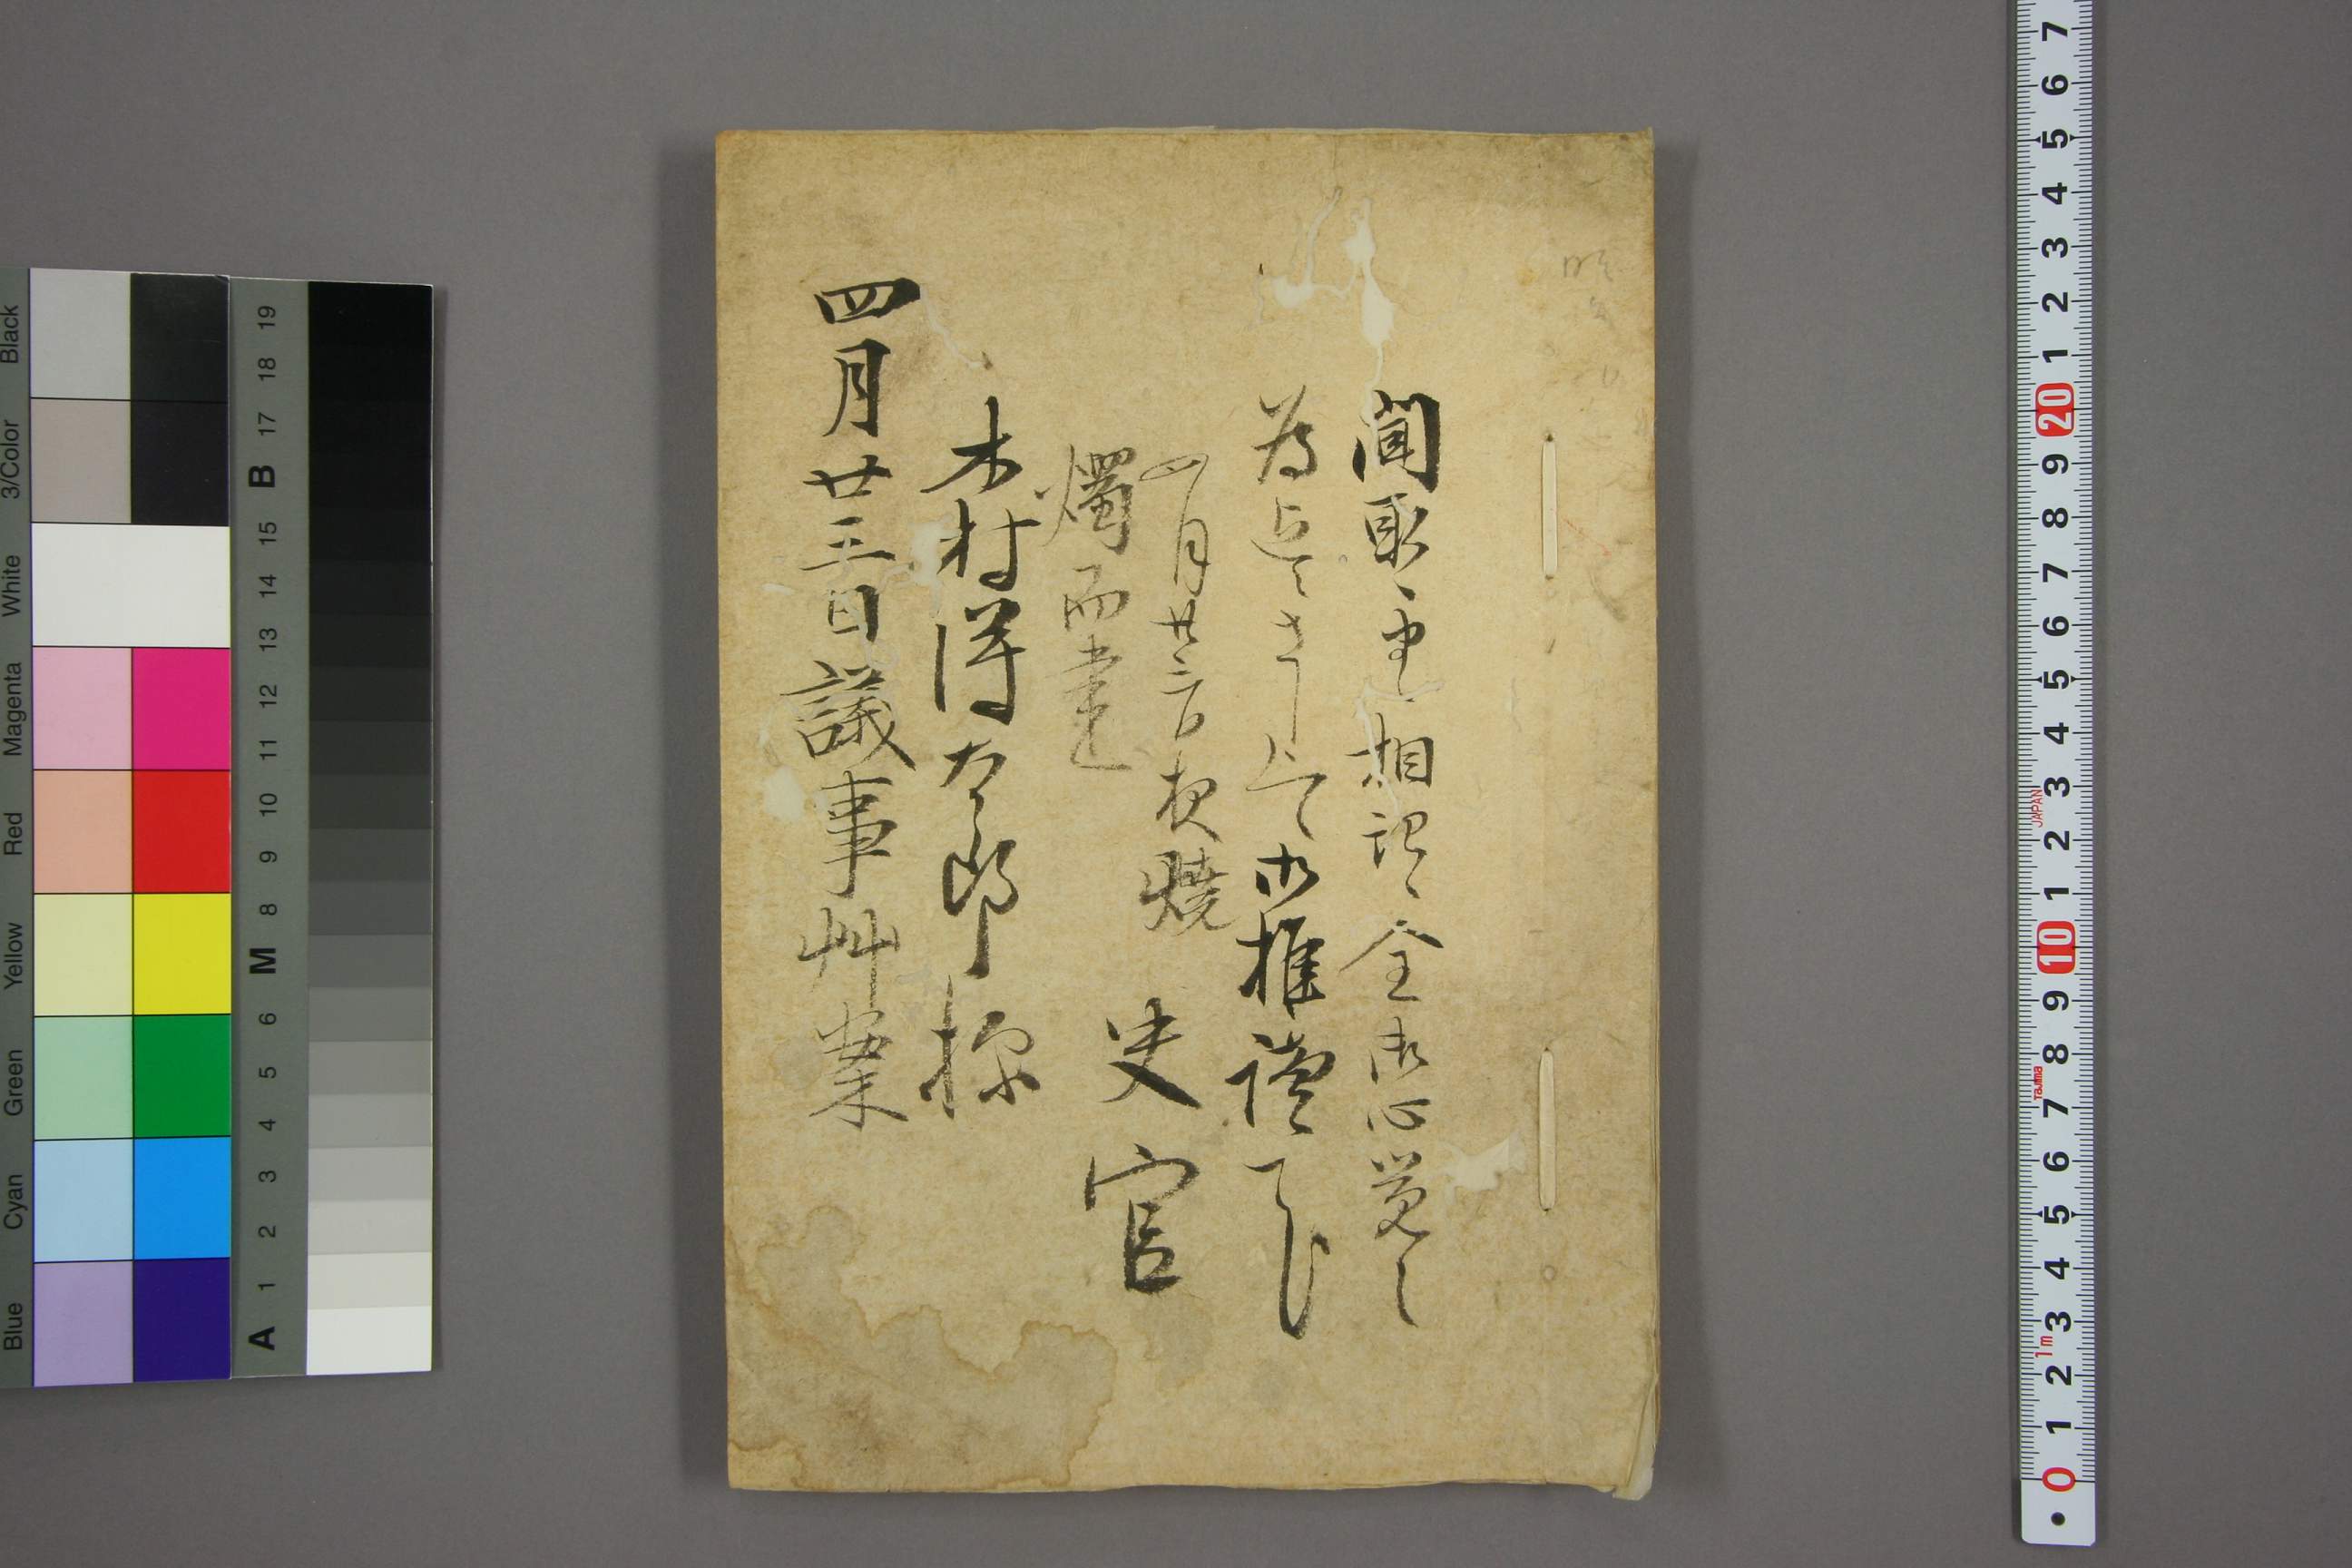 聞取書相認全御心覚之
為
御推譲
四月廿三日夜焼
燭而書
史官
木村得太郎様
四月廿三日議事艸業
7 6 5 4 3 2 1 20 9 8 7 6 5 4 3 2 1 10 9 8 7 6 5 4 3 2 1 0
JAPAN
Tajima
1m
Black
3/Color
White
Magenta
Red
Yellow
Green
Cyan
Blue
19 18 17 B 15 14 13 12 11 10 9 8 M 6 5 4 3 2 1 A